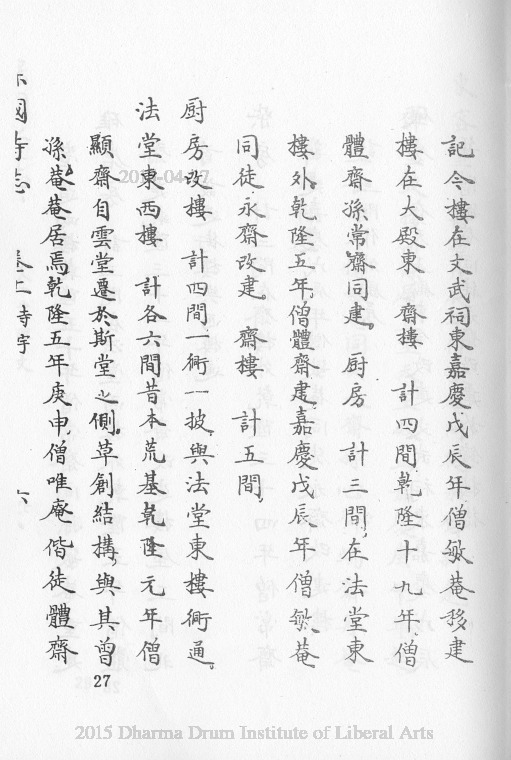 記今樓在文武祠東嘉慶戊辰年僧敏菴移建
樓在大殿東　齋樓　計四間乾隆十九年僧
體齋孫常齋同建。厨房　計三間在法堂東
樓外乾隆五年僧體齋建嘉慶戊辰年僧敏菴
同徒永齋改建。齋樓　計五間
厨房改樓　計四間一衖一披與法堂東樓衖通。
法堂東西樓　計各六間昔本荒基乾隆元年僧
顯齋自雲堂遷於斯堂之側。草創結搆與其曾
孫菴菴居焉乾隆五年庚申僧唯庵偕徒體齋
國寺志　卷上　寺宇　六
27
2015 Dharma Drum Institute of Liberal Arts